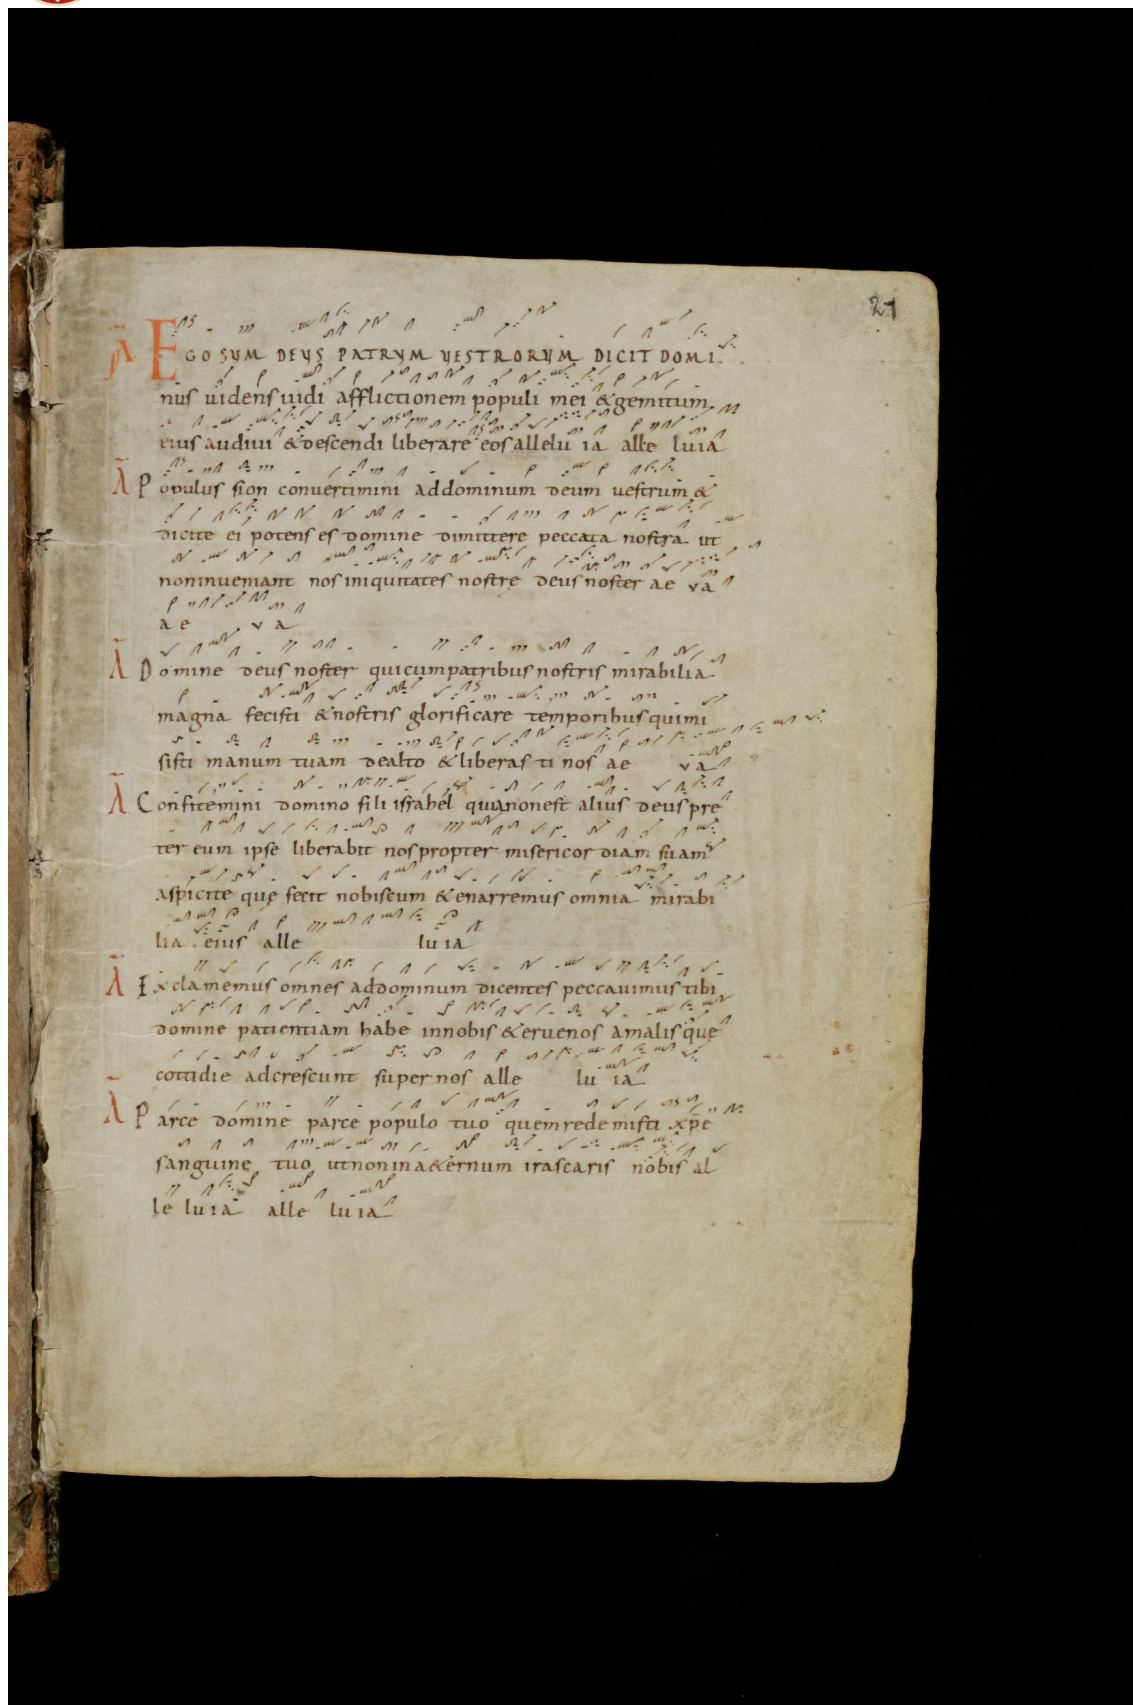 21
Ā EGO SVM DEVS PATRVM VESTRORVM DICIT DOMI
nus uidens uidi afflictionem populi mei & gemitum
eius audiui & descendi liberare eos allelu ia alle luia
Ā Populus sion conuertimini ad dominum deum uestrum &
dicite ei potens es domine dimittere peccata nostra ut
non inueniant nos iniquitates nostrę deus noster ae va
ae va
Ā Domine deus noster qui cum patribus nostris mirabilia
magna fecisti & nostris glorificare temporibus qui mi
sisti manum tuam de alto & liberasti nos ae va
Ā Confitemini domino fili israhel quia non est alius deus pre
ter eum ipse liberabit nos propter misericordiam suam
aspicite quę fecit nobiscum & enarremus omnia mirabi
lia eius alle luia
Ā Exclamemus omnes ad dominum dicentes peccauimus tibi
domine patientiam habe in nobis & erue nos a malis quę
cottidie adcrescunt super nos alle lu ia
Ā Parce domine parce populo tuo quem redemisti xp̄e
sanguine tuo ut non in a&ernum irascaris nobis al
le luia alle luia